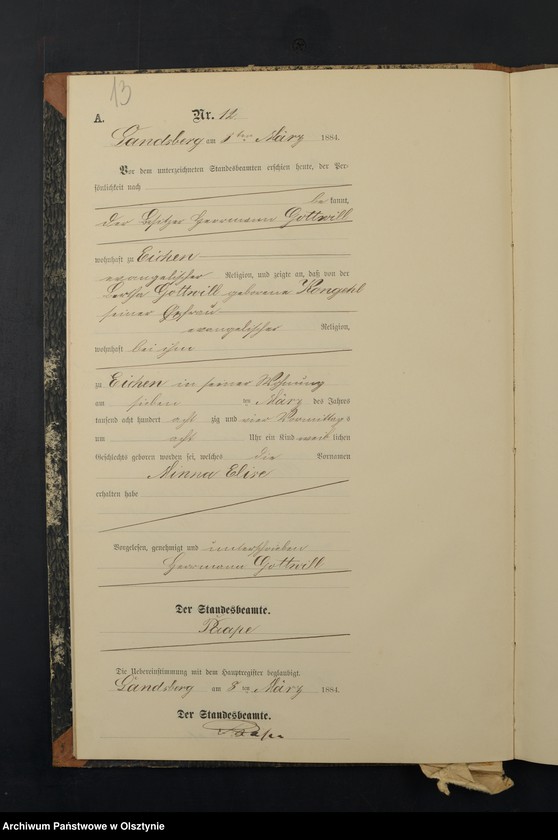 13
A.
Nr. 12
Landsberg am 8ten März 1884.
Vor dem unterzeichneten Standesbeamten erschien heute, der Per-
sönlichkeit nach
be kannt,
der Besitzer Herrmann Gottwill
wohnhaft zu Eichen
evangelischer Religion, und zeigte an, daß von der
Bertha Gottwill geborene Kongehl
seiner Ehefrau
evangelischer Religion,
wohnhaft bei ihm
zu Eichen in seiner Wohnung
am sieben ten März des Jahres
tausend acht hundert acht zig und vier Vormittags
um acht Uhr ein Kind weib lichen
Geschlechts geboren worden sei, welches die Vornamen
Minna Elise
erhalten habe
Vorgelesen, genehmigt und unterschrieben
Herrmann Gottwill
Der Standesbeamte.
Die Uebereinstimmung mit dem Hauptregister beglaubigt.
Landsberg am 8 ten März 1884.
Der Standesbeamte.
Archiwum Państwowe w Olsztynie